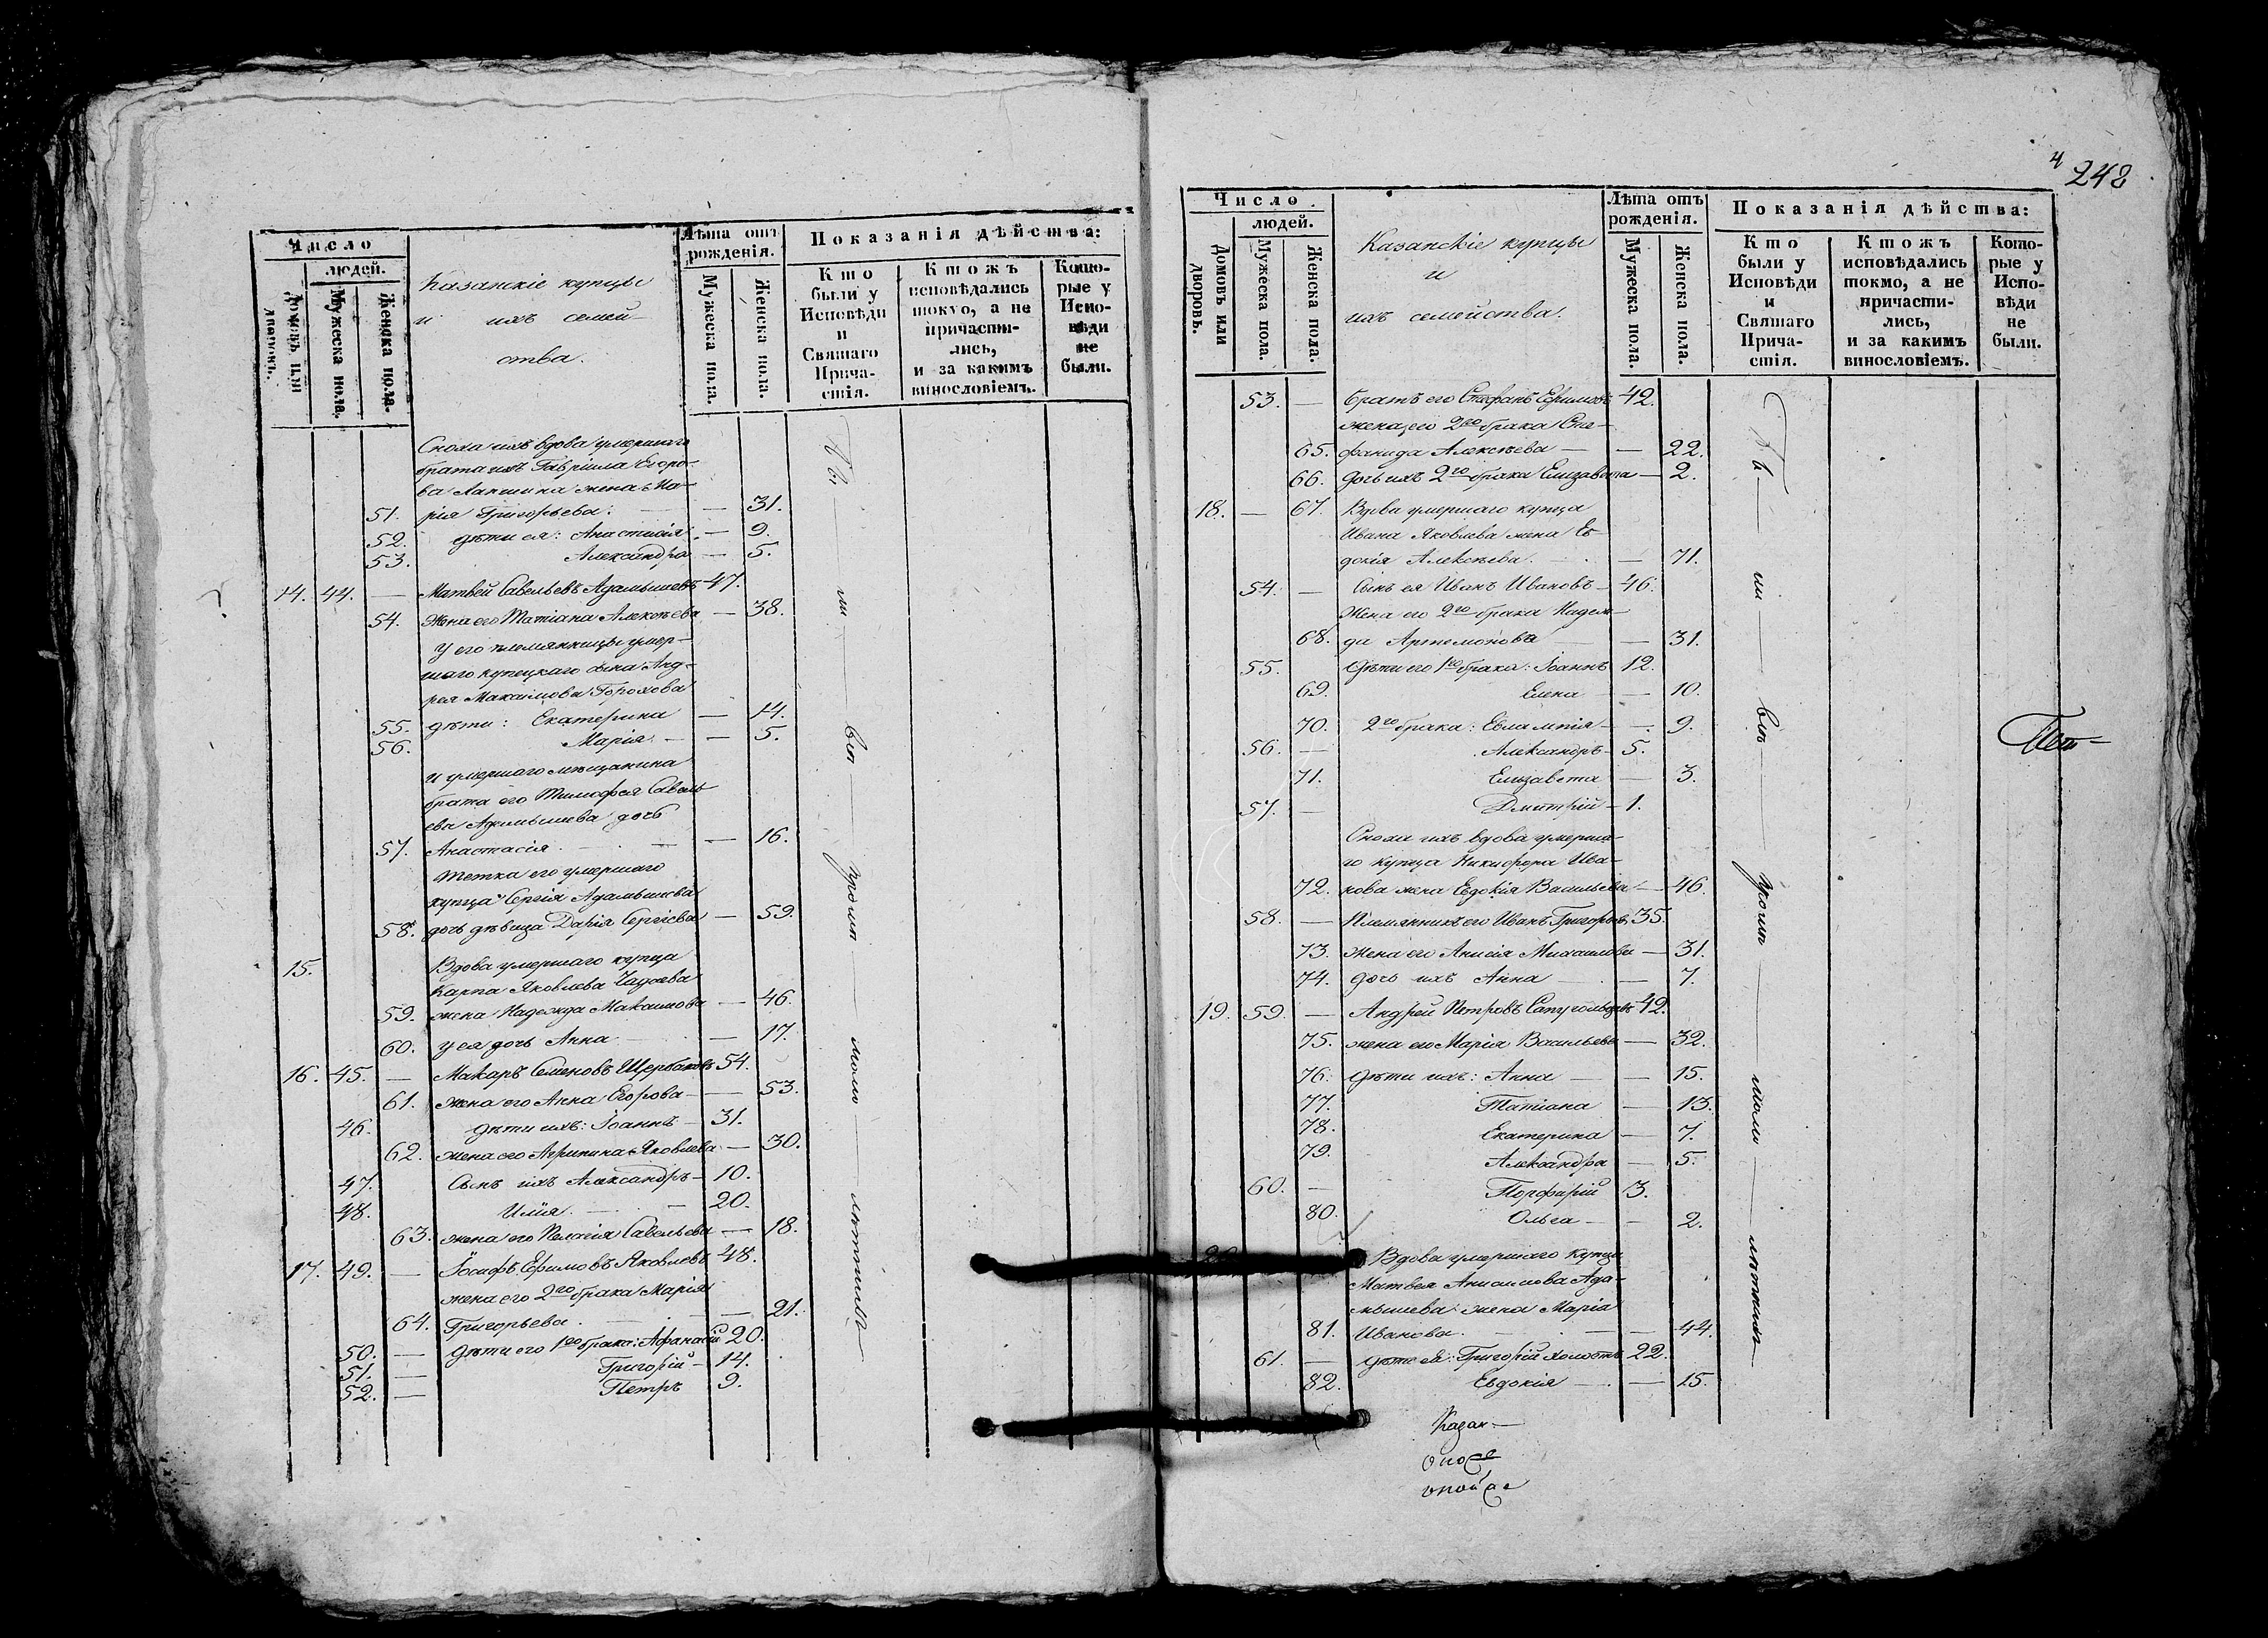 Число
людей.
Домовъ или дворовъ.
Мужеска пола.
Женска пола.
Казанскіе купцы
и ихъ семей-
ства.
Лѣта отъ рожденія.
Мужеска пола.
Женска пола.
Показанія дѣйства:
Кто были у Исповѣди и Святаго Прича-стія.
Ктожъ исповѣдались токмо, а не причасти-лись, и за какимъ винословіемъ.
Кото-рые у Испо-вѣди не были.
Сноха ихъ вдова умершаго
брата ихъ Гавріила Егоро-
ва Лапшина жена Ма-
51. рія Григорьева: — 31.
52. дѣти ея: Анастасія — 9.
53. Александра — 5.
14. 44. — Матвей Савельевъ Адамышевъ 47.
54. Жена его Татіана Алексѣева — 38.
У его племянницы умер-
шаго купецкаго сына Анд-
рея Максимова Горохова
55. дѣти: Екатерина — 14.
56. Марія — 5.
и умершаго мѣщанина
брата его Тимофея Савель-
ева Адамышева дочь
57. Анастасія — 16.
Тетка его умершаго
купца Сергія Адамышева
58. дочь дѣвица Дарія Сергіева — 59.
15. Вдова умершаго купца
Карпа Яковлева Чадаева
59. жена Надежда Максимова — 46.
60. у ея дочь Анна — 17.
16. 45. — Макаръ Семеновъ Щербаковъ 54.
61. жена его Анна Егорова — 53.
46. дѣти ихъ: Іоаннъ — 31.
62. жена его Агрипина Яковлева — 30.
47. Сынъ ихъ Александръ — 10.
48. Илія — 20.
63. жена его Пелагія Савельева — 18.
17. 49. — Іосифъ Ефимовъ Яковлевъ 48.
жена его 2го брака Марія
64. Григорьева — 21.
50. — Дѣти его 1го брака: Афанасій 20.
51. — Григорій — 14.
52. — Петръ 9.
4 242
Число
людей.
Домовъ или дворовъ.
Мужеска пола.
Женска пола.
Казанскіе купцы
и
ихъ семейства.
Лѣта отъ рожденія.
Мужеска пола.
Женска пола.
Показанія дѣйства:
Кто были у Исповѣди и Святаго Прича-стія.
Ктожъ исповѣдались токмо, а не причасти-лись, и за какимъ винословіемъ.
Кото-рые у Испо-вѣди не были.
53. — братъ его Стефанъ Ефимовъ 42.
жена его 2го брака Сте-
65. фанида Алексѣева — 22.
66. дочь ихъ 2го брака Елизавета — 2.
18. — 67. Вдова умершаго купца
Ивана Яковлева жена Ев-
докія Алексѣева — 71.
54. — Сынъ ея Иванъ Ивановъ — 46.
Жена его 2го брака Надеж-
68. да Артемонова — 31.
55. Дѣти его 1го брака: Іоаннъ 12.
69. Елена — 10.
70. 2го брака: Евлампія — 9.
56. — Александръ — 5.
71. Елизавета — 3.
57. — Дмитрій — 1.
Сноха ихъ вдова умерша-
го купца Никифора Ива-
72. нова жена Евдокія Васильева — 46.
58. — Племянникъ его Иванъ Григорьевъ 35.
73. Жена его Анисія Михаилова — 31.
74. дочь ихъ Анна — 7.
19. 59. — Андрей Петровъ 42.
75. жена его Марія Васильева — 32.
76. дѣти ихъ: Анна — 15.
77. Татіана — 13.
78. Екатерина — 7.
79. Александра — 5.
60. — Порфирій 3.
80. Ольга — 2.
Вдова умершаго купца
Матвея Анисимова Ада-
мышева жена Марія
81. Иванова — 44.
61. — дѣти ея: Григорій холостъ 22.
82. Евдокія — 15.
Казан-